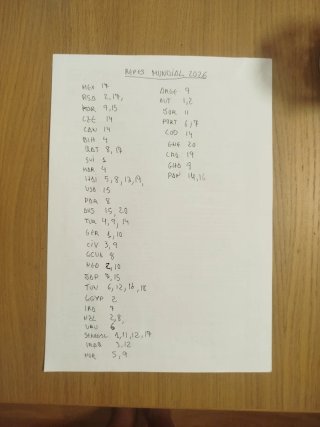 REPES MUNDIAL 2026
MEX 17
RSA 2,17,
KOR 9,15
CZE 14
CAN 14
BIH 4
QAT 8,17
SUI 1
MAR 4
HAI 5,8,17,19,
USA 15
PAR 8
AUS 15,20
TUR 4,9,14
GER 1,10
CIV 3,9
ECUA 8
NED 2,10
JAP 7,15
TUN 6,12,18
EGYP 2
IRA 7
NZL 2,8,
URU 6
SENEGAL 1,11,12,17
IRAQ 3,12
NOR 5,9
ARGE 9
AUT 1,2
JOR 11
PORT 6,7
COD 14
ENG 20
CRO 19
GHA 9
PAN 14,16